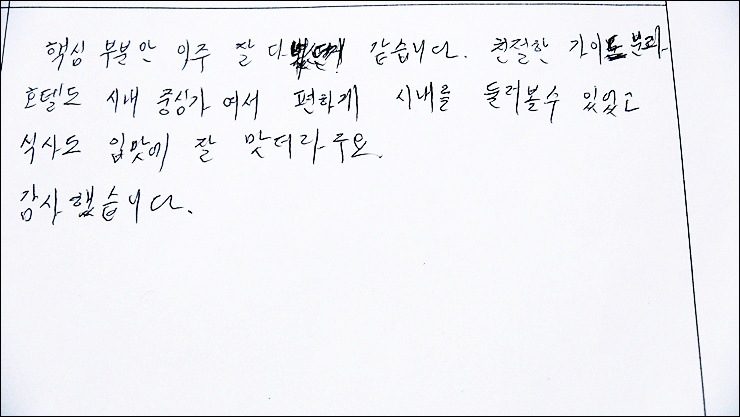 핵심 부분만 아주 잘 다 같습니다. 친절한 가이드분과
호텔도 시내 중심가 여서 편하게 시내를 둘러볼수 있었고
식사도 입맛에 잘 맞더라구요.
감사했습니다.